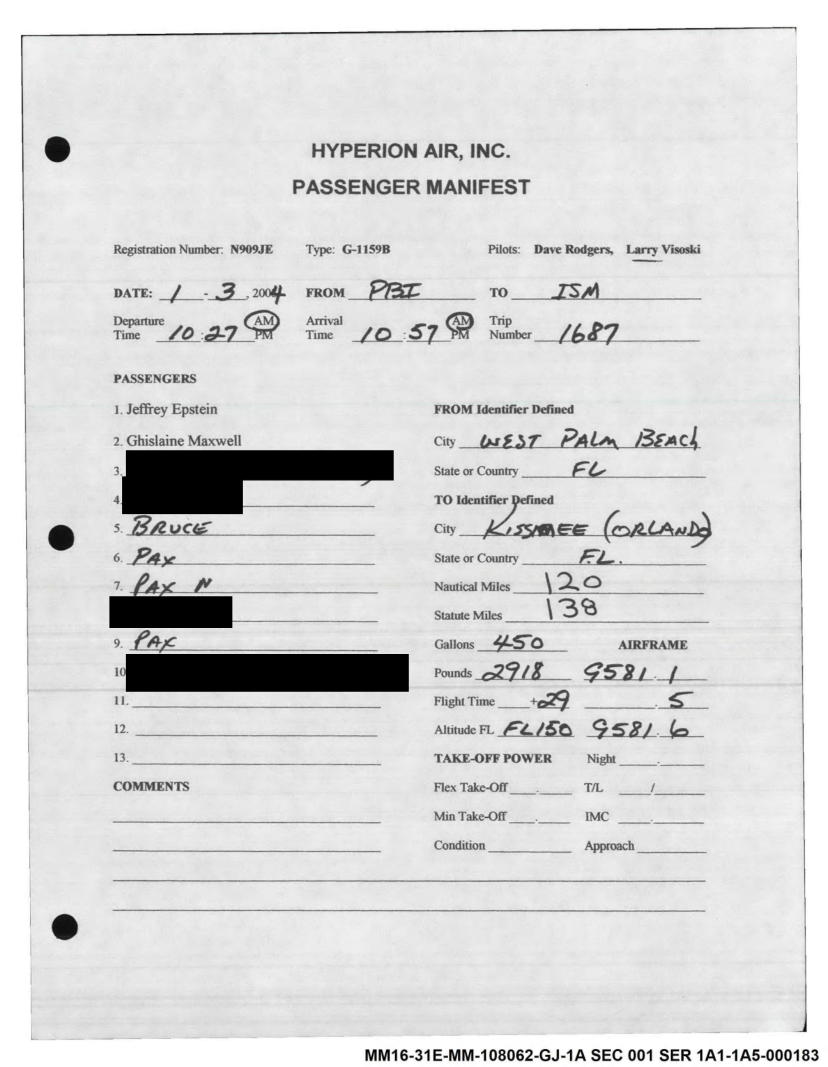 HYPERION AIR, INC.
PASSENGER MANIFEST
Registration Number: N909JE Type: G-1159B Pilots: Dave Rodgers, Larry Visoski
DATE: 1 - 3, 2004 FROM PBI TO ISM
Departure Time 10:27 AM PM Arrival Time 10:57 AM PM Trip Number 1687
PASSENGERS
1. Jeffrey Epstein FROM Identifier Defined
2. Ghislaine Maxwell City WEST PALM BEACH
3. State or Country FL
4. TO Identifier Defined
5. BRUCE City KISSMEE (ORLANDO)
6. PAX State or Country FL.
7. PAX N Nautical Miles 120
Statute Miles 138
9. PAX Gallons 450 AIRFRAME
10 Pounds 2918 9581.1
11. Flight Time +29 .5
12. Altitude FL FL150 9581.6
13. TAKE-OFF POWER Night
COMMENTS Flex Take-Off T/L /
Min Take-Off IMC
Condition Approach
MM16-31E-MM-108062-GJ-1A SEC 001 SER 1A1-1A5-000183